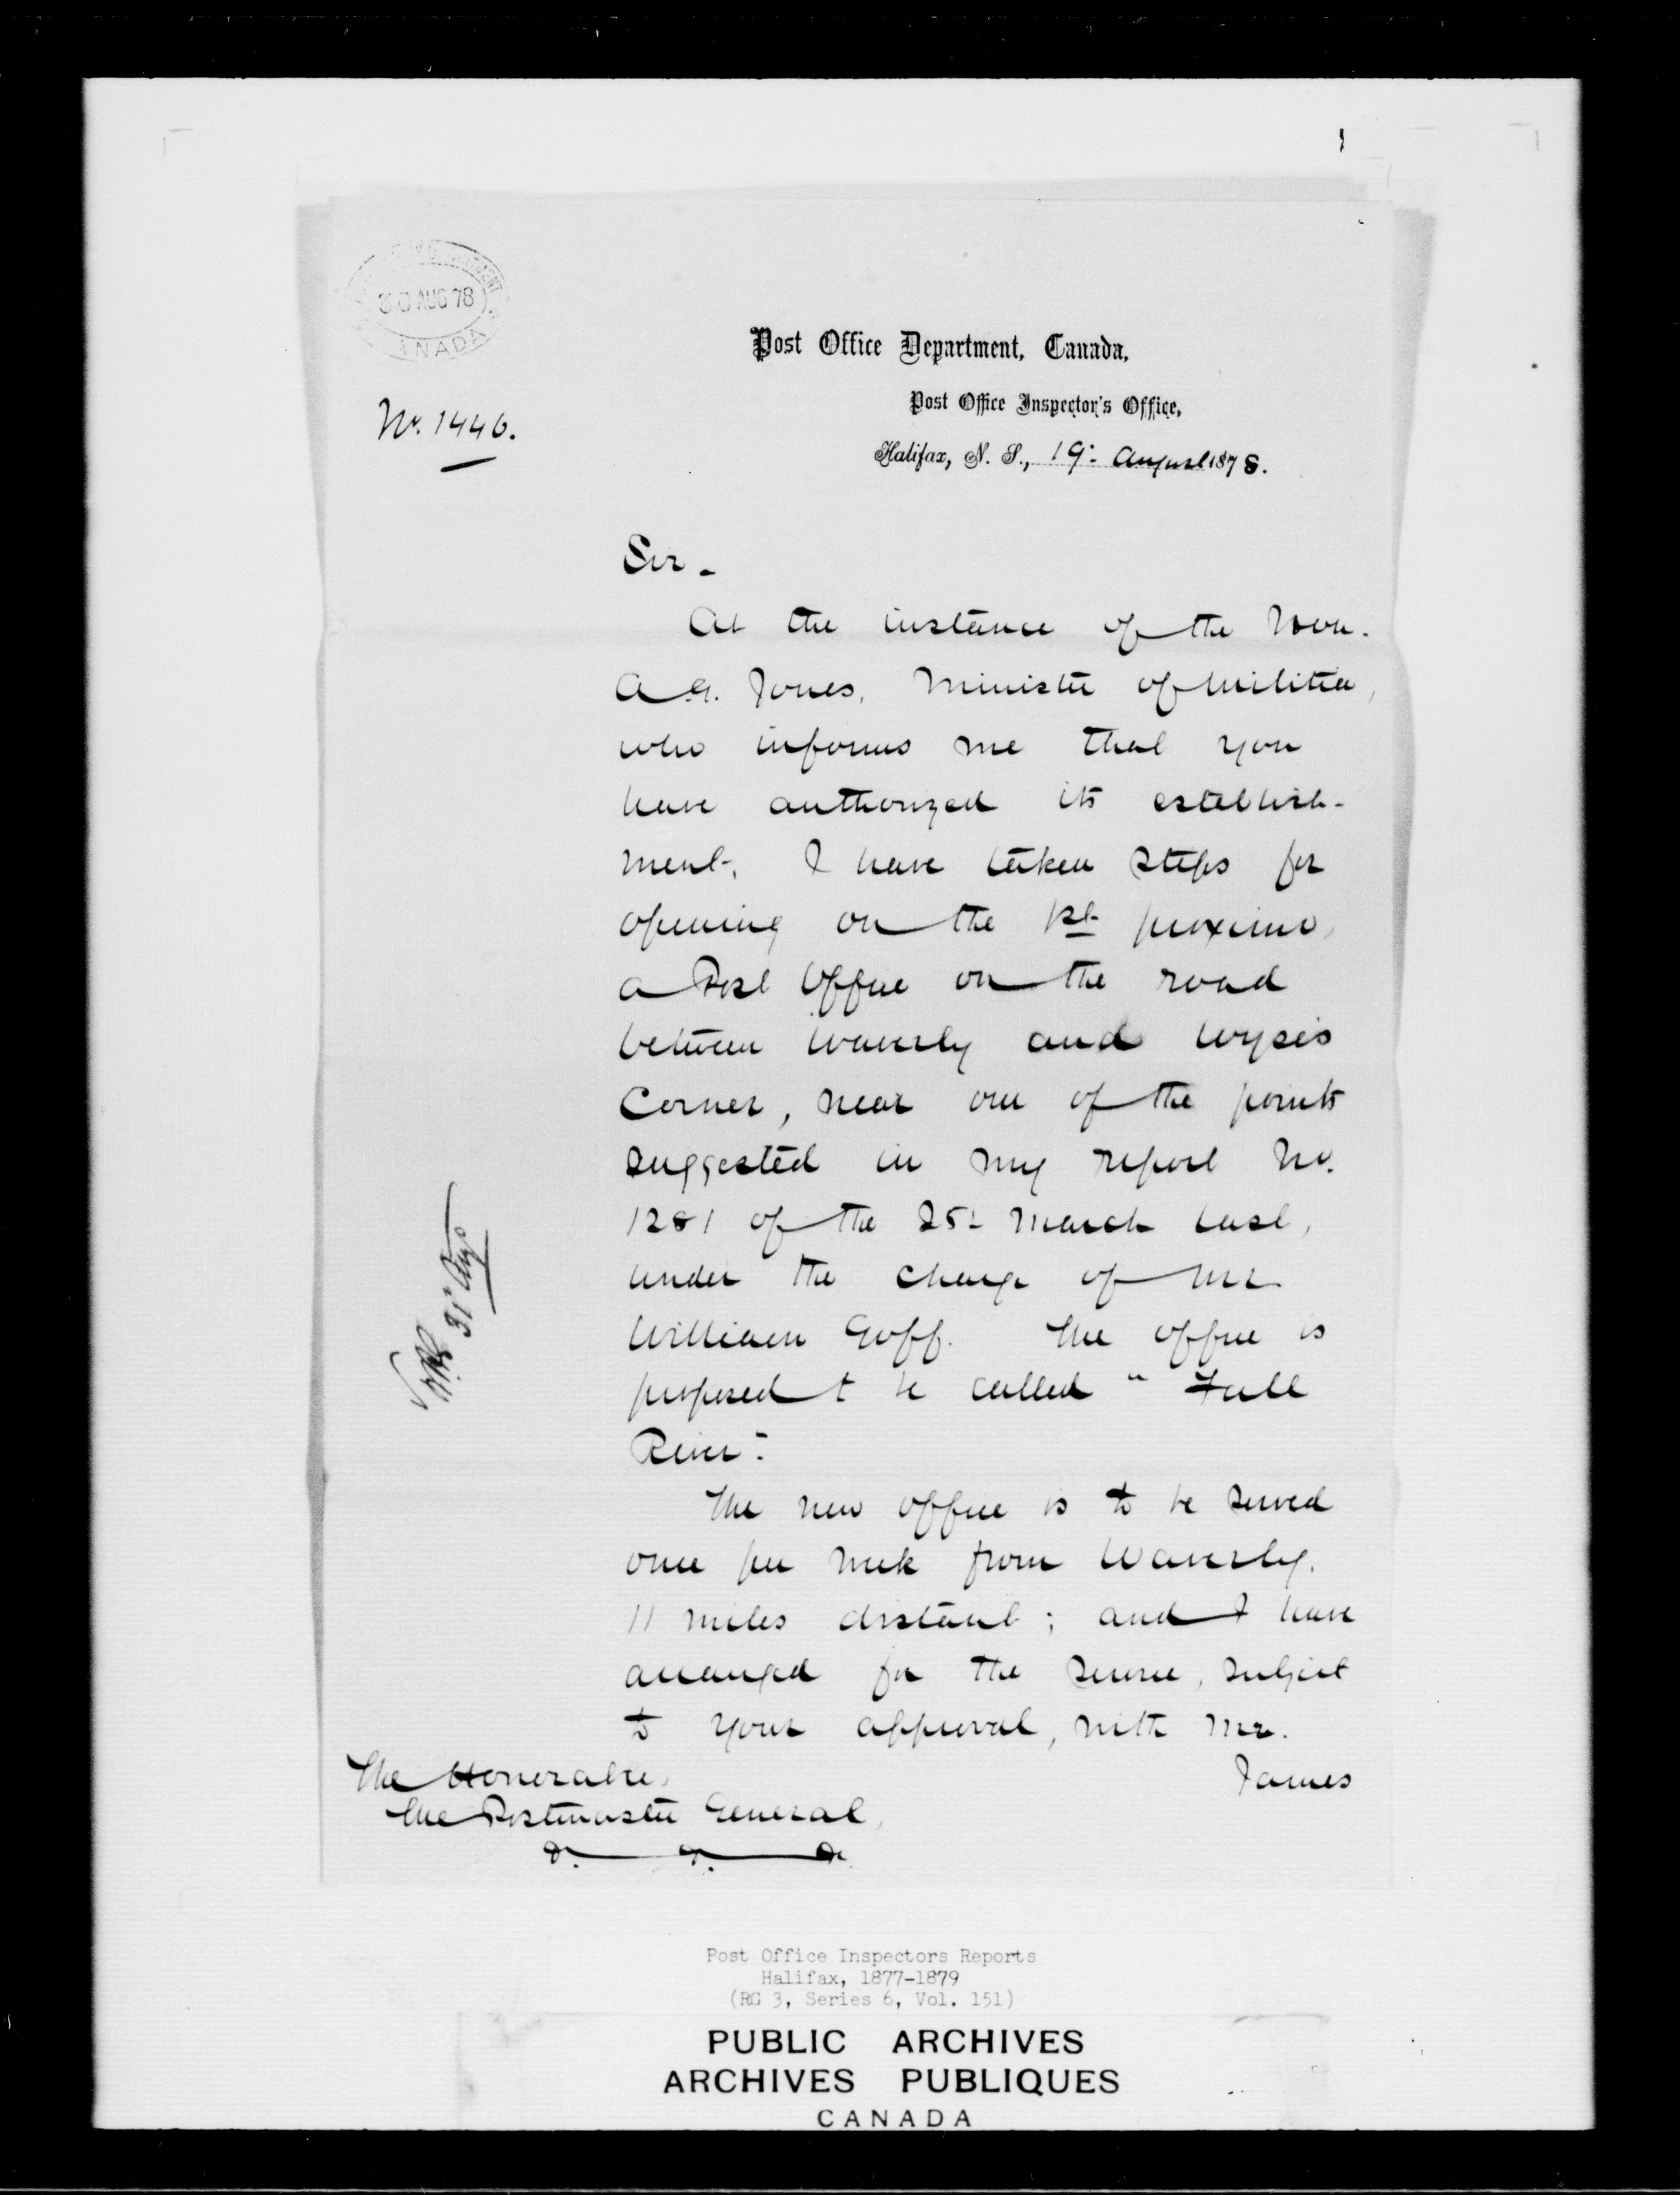 30 AUG 78
CANADA
Post Office Department, Canada,
Post Office Inspector's Office,
No. 1446.
Halifax, N. S., 19: August 1878.
Sir -
At the instance of the Hon.
A. G. Jones, Minister of Militia,
who informs me that you
have authorized its establish-
ment, I have taken steps for
opening on the 1st proximo,
a Post Office on the road
between Waverly and Wyse's
Corner, near one of the points
suggested in my report No.
1281 of the 25: March last,
under the charge of Mr.
William Goff. The office is
proposed to be called "Fall
River".
The new office is to be served
once per week from Waverly,
11 miles distant; and I have
arranged for the service, subject
to your approval, with Mr.
James
The Honorable,
the Postmaster General,
31 Aug
Post Office Inspectors Reports
Halifax, 1877-1879
(RG 3, Series 6, Vol. 151)
PUBLIC ARCHIVES
ARCHIVES PUBLIQUES
CANADA